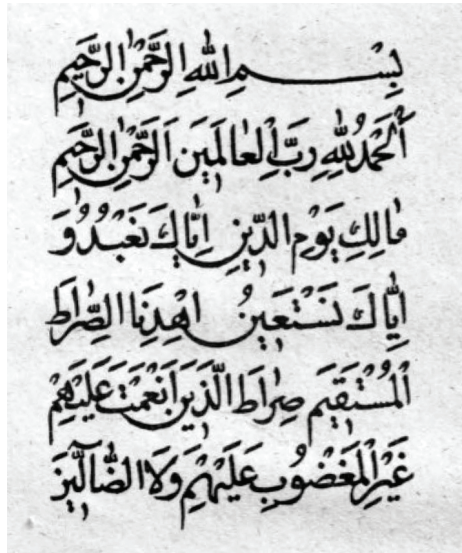 بِسْمِ اللهِ الرَّحْمٰنِ الرَّحِيمِ
اَلْحَمْدُ لِلّٰهِ رَبِّ الْعٰالَمِينَ اَلرَّحْمٰنِ الرَّحِيمِ
مٰالِكِ يَوْمِ الدِّينِ اِيّٰاكَ نَعْبُدُ وَ
اِيّٰاكَ نَسْتَعِينُ اِهْدِنَا الصِّرٰاطَ
الْمُسْتَقِيمَ صِرٰاطَ الَّذِينَ اَنْعَمْتَ عَلَيْهِمْ
غَيْرِ الْمَغْضُوبِ عَلَيْهِمْ وَلَا الضّٰٓالِّينَ